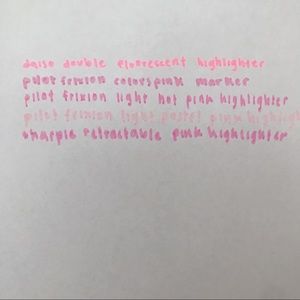 daiso double fluorescent highlighter
pilot frixion colors pink marker
pilot frixion light hot pink highlighter
pilot frixion light pastel pink highlighter
sharpie retractable pink highlighter